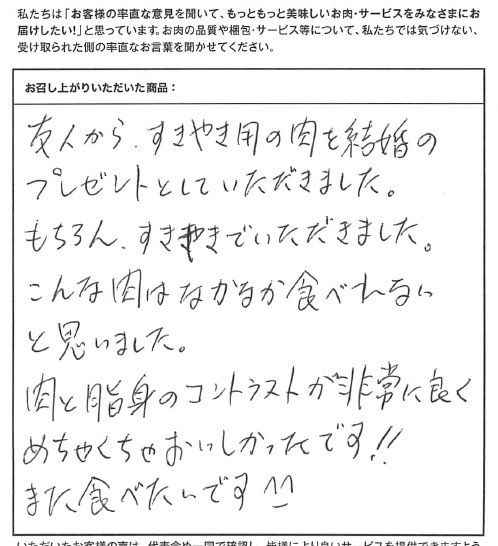 私たちは「お客様の率直な意見を聞いて、もっともっと美味しいお肉・サービスをみなさまにお
届けしたい！」と思っています。お肉の品質や梱包・サービス等について、私たちでは気づけない、
受け取られた側の率直なお言葉を聞かせてください。
お召し上がりいただいた商品：
友人から、すきやき用の肉を結婚の
プレゼントとしていただきました。
もちろん、すきやきでいただきました。
こんな肉はなかなか食べれない
と思いました。
肉と脂身のコントラストが非常に良く
めちゃくちゃおいしかったです!!
また食べたいです^^
いただいたお客様の声は、代表含め一同で確認し、皆様により良いサービスを提供できますよう